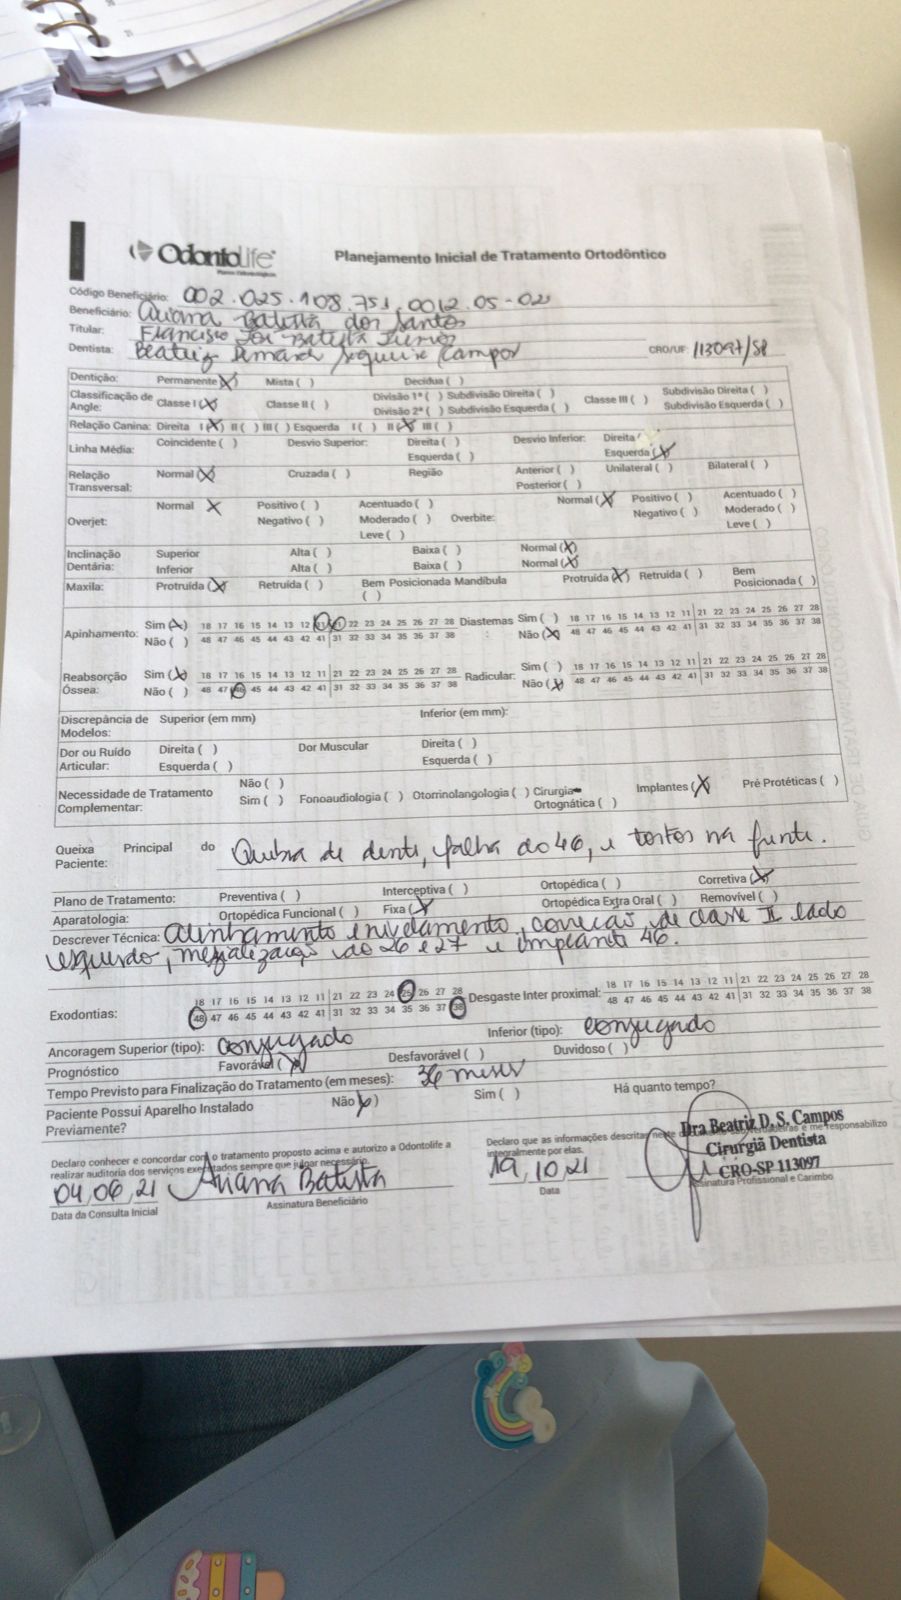 OdontoLife
Planos Odontológicos
Planejamento Inicial de Tratamento Ortodôntico
Código Beneficiário: 002.025.108.751.0012.05-02
Beneficiário: Ariana Batista dos Santos
Titular: Francisco José Batista Junior
Dentista: Beatriz Siqueira Campos CRO/UF: 113097/SP
Dentição: Permanente (X) Mista ( ) Decídua ( )
Classificação de Angle: Classe I (X) Classe II ( ) Divisão 1ª ( ) Subdivisão Direita ( ) Classe III ( ) Subdivisão Direita ( )
Divisão 2ª ( ) Subdivisão Esquerda ( ) Subdivisão Esquerda ( )
Relação Canina: Direita I (X) II ( ) III ( ) Esquerda I ( ) II (X) III ( )
Linha Média: Coincidente ( ) Desvio Superior: Direita ( ) Desvio Inferior: Direita ( )
Esquerda ( ) Esquerda (X)
Relação Transversal: Normal (X) Cruzada ( ) Região Anterior ( ) Unilateral ( ) Bilateral ( )
Posterior ( )
Overjet: Normal X Positivo ( ) Acentuado ( ) Overbite: Normal (X) Positivo ( ) Acentuado ( )
Negativo ( ) Moderado ( ) Negativo ( ) Moderado ( )
Leve ( ) Leve ( )
Inclinação Superior Alta ( ) Baixa ( ) Normal (X)
Dentária: Inferior Alta ( ) Baixa ( ) Normal (X)
Maxila: Protruída (X) Retruída ( ) Bem Posicionada ( ) Mandíbula Protruída (X) Retruída ( ) Bem Posicionada ( )
Apinhamento: Sim (X) 18 17 16 15 14 13 12 11 21 22 23 24 25 26 27 28 Diastemas: Sim ( ) 18 17 16 15 14 13 12 11 21 22 23 24 25 26 27 28
Não ( ) 48 47 46 45 44 43 42 41 31 32 33 34 35 36 37 38 Não (X) 48 47 46 45 44 43 42 41 31 32 33 34 35 36 37 38
Reabsorção Óssea: Sim (X) 18 17 16 15 14 13 12 11 21 22 23 24 25 26 27 28 Radicular: Sim ( ) 18 17 16 15 14 13 12 11 21 22 23 24 25 26 27 28
Não ( ) 48 47 46 45 44 43 42 41 31 32 33 34 35 36 37 38 Não (X) 48 47 46 45 44 43 42 41 31 32 33 34 35 36 37 38
Discrepância de Modelos: Superior (em mm) Inferior (em mm):
Dor ou Ruído Articular: Direita ( ) Dor Muscular Direita ( )
Esquerda ( ) Esquerda ( )
Necessidade de Tratamento Complementar: Não ( )
Sim ( ) Fonoaudiologia ( ) Otorrinolangologia ( ) Cirurgia Ortognática ( ) Implantes (X) Pré Protéticas ( )
Queixa Principal do Paciente: Quebra de dente, falha do 46, e tortos na frente.
Plano de Tratamento: Preventiva ( ) Interceptiva ( ) Ortopédica ( ) Corretiva (X)
Aparatologia: Ortopédica Funcional ( ) Fixa (X) Ortopédica Extra Oral ( ) Removível ( )
Descrever Técnica: alinhamento e nivelamento, correção de classe II lado
esquerdo, mesialização do 26 e 27 e implante 46.
Exodontias: 18 17 16 15 14 13 12 11 21 22 23 24 25 26 27 28 Desgaste Inter proximal: 18 17 16 15 14 13 12 11 21 22 23 24 25 26 27 28
48 47 46 45 44 43 42 41 31 32 33 34 35 36 37 38 48 47 46 45 44 43 42 41 31 32 33 34 35 36 37 38
Ancoragem Superior (tipo): conjugado Inferior (tipo): conjugado
Prognóstico Favorável (X) Desfavorável ( ) Duvidoso ( )
Tempo Previsto para Finalização do Tratamento (em meses): 36 meses
Paciente Possui Aparelho Instalado Previamente? Não (X) Sim ( ) Há quanto tempo?
Declaro conhecer e concordar com o tratamento proposto acima e autorizo a Odontolife a
realizar auditoria dos serviços executados sempre que julgar necessário.
Declaro que as informações descritas e me responsabilizo
integralmente por elas.
Dra Beatriz D. S. Campos
Cirurgiã Dentista
CRO-SP 113097
04,06,21 Ariana Batista 19,10,21
Data da Consulta Inicial Assinatura Beneficiário Data Assinatura Profissional e Carimbo